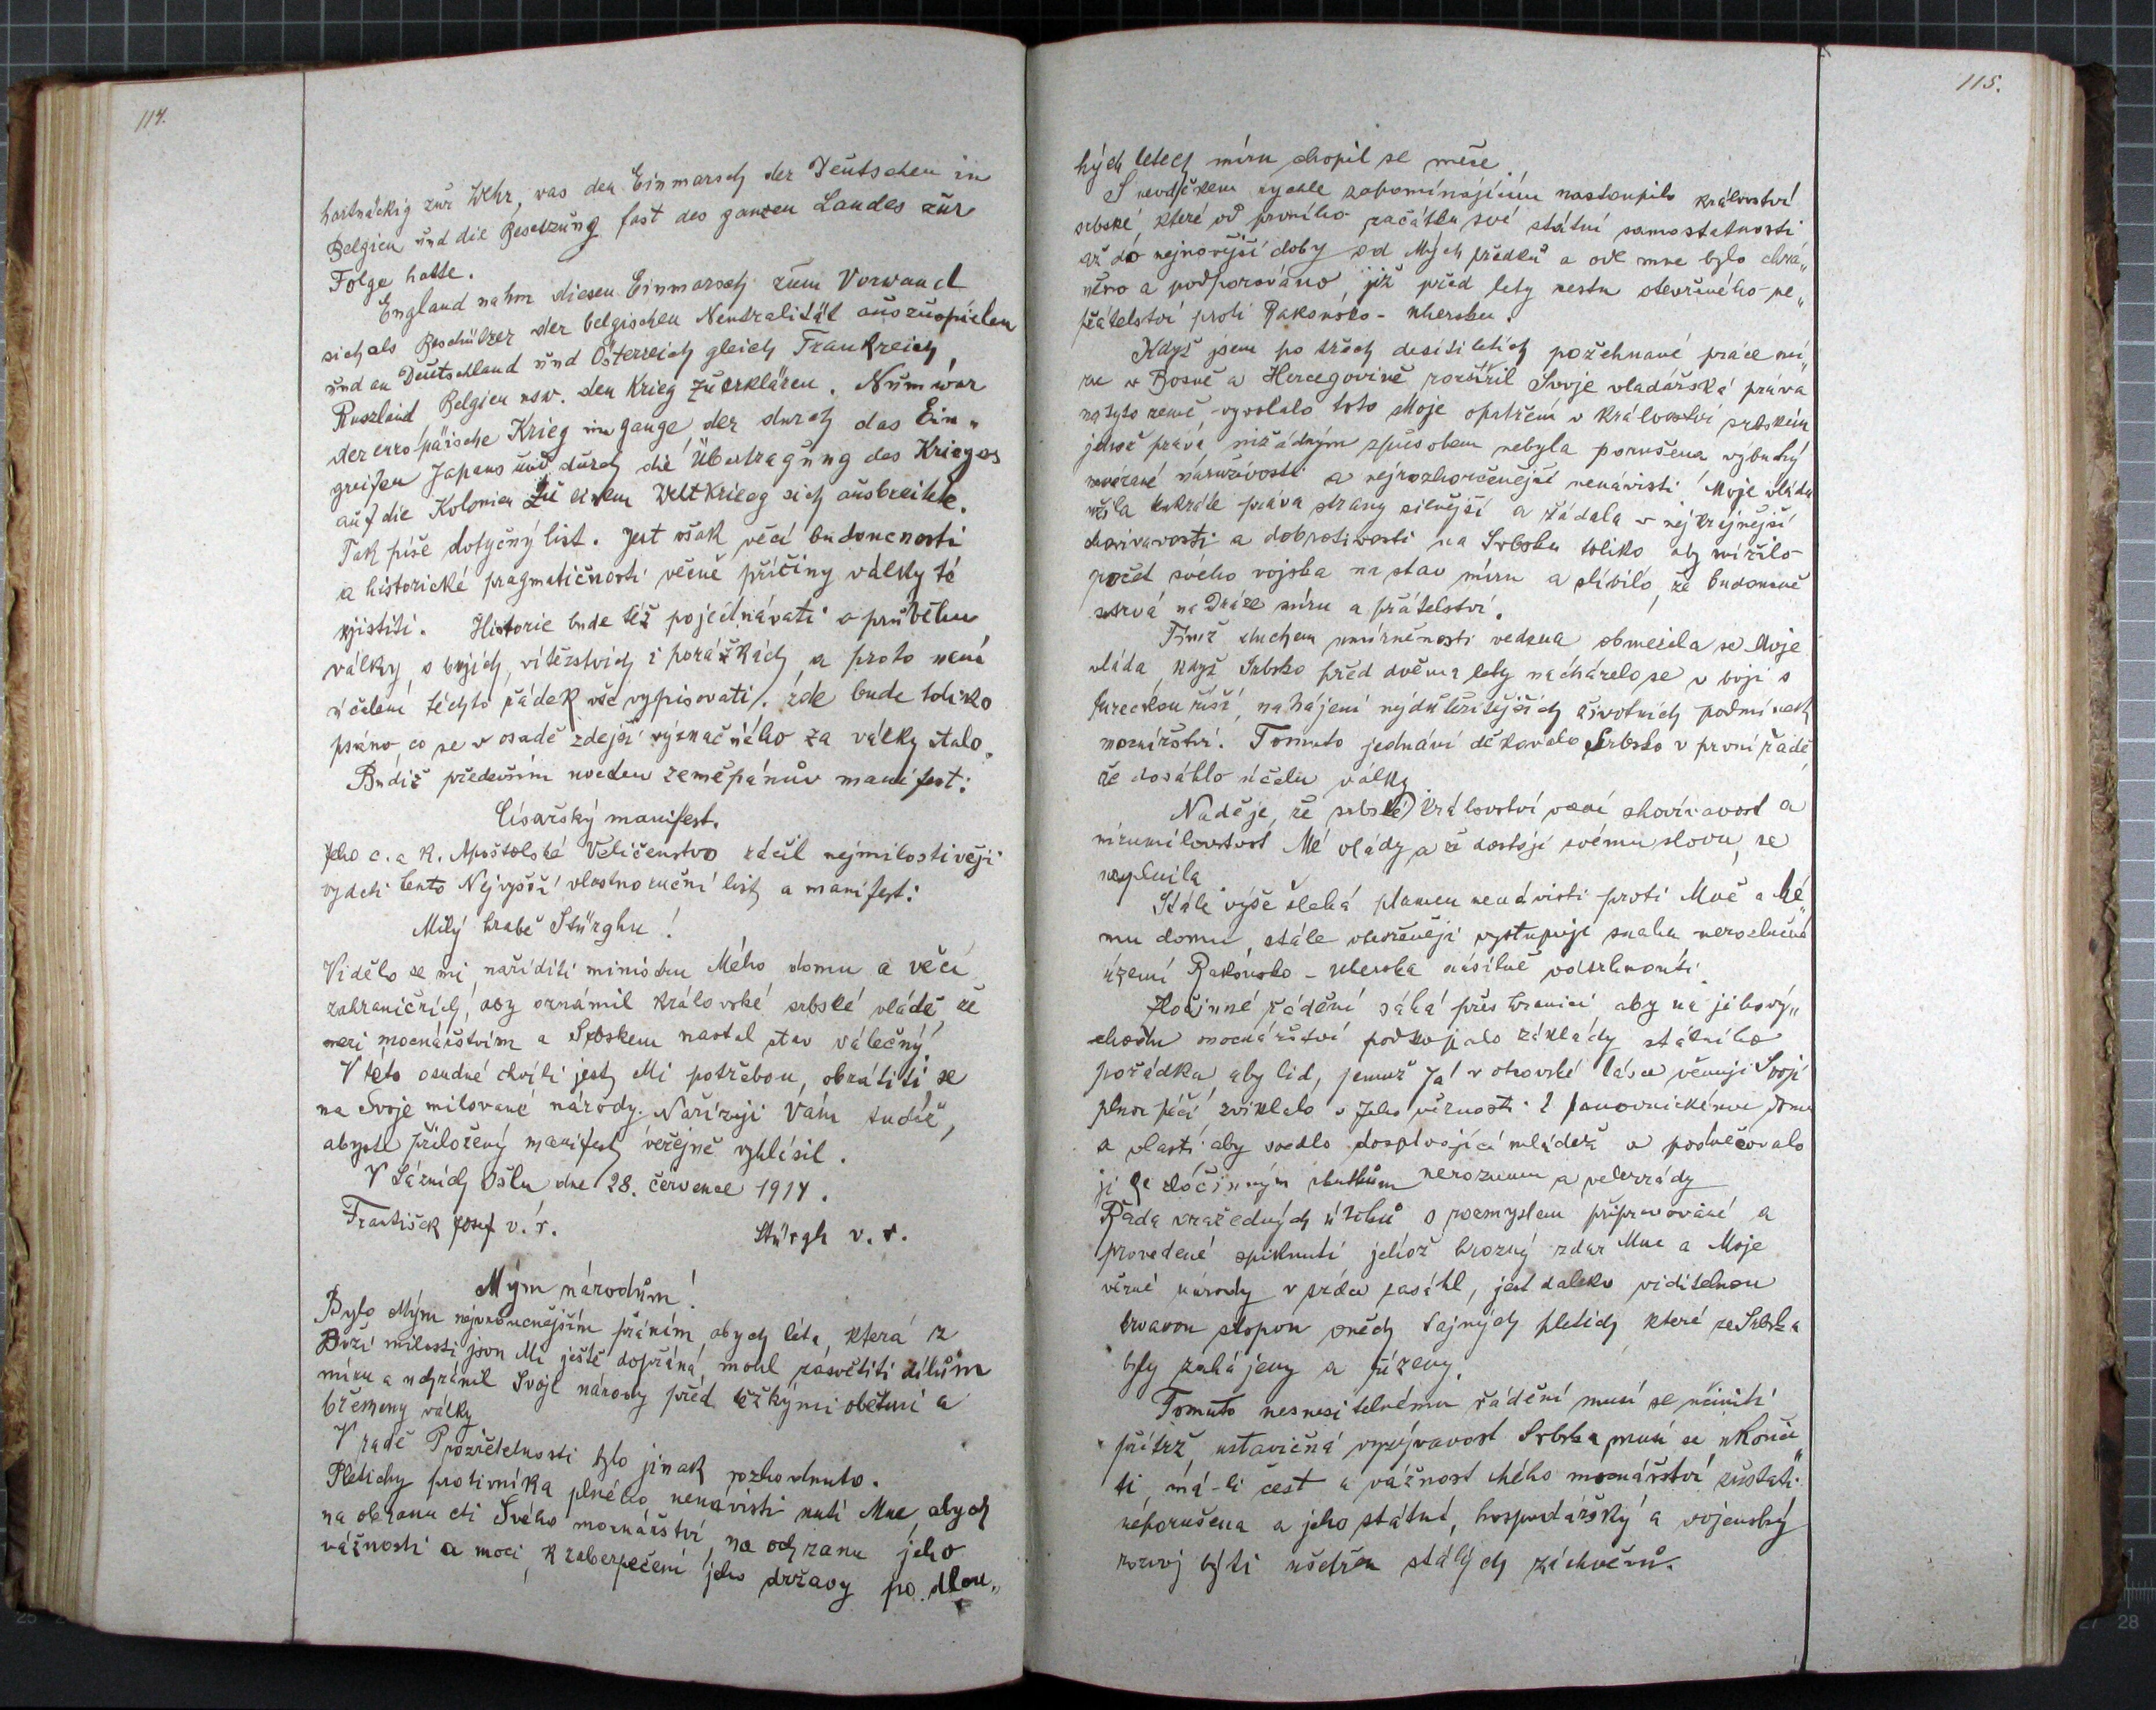 114.
hartnäckig zur Wehr, was den Einmarsch der Deutschen in
Belgien und die Besetzung fast des ganzen Landes zur
Folge hatte.
England nahm diesen Einmarsch zum Vorwand
sich als Beschützer der belgischen Neutralität auszuspielen
und an Deutschland und Österreich gleich Frankreich,
Russland Belgien usw. den Krieg zu erklären. Nun war
der europäische Krieg im Gange der durch das Ein„
greifen Japans und durch die Übertragung des Krieges
auf die Kolonien zu einem Weltkrieg sich ausbreitete.
Tak píše dotyčný list. Jest však věcí budoucnosti
a historické pragmatičnosti věčné příčiny války té
zjistiti. Historie bude též pojednávati o průběhu
války, o bojích, vítězstvích i porážkách, a proto není
účelem těchto řádek vše vypisovati, zde bude toliko
psáno co se v osadě zdejší význačného za války stalo.
Budiž především uveden zeměpánův manifest:
Císařský manifest.
Jeho c. a k. Apoštolské Veličenstvo ráčil nejmilostivěji
vydati tento Nejvyšší vlastnoruční list a manifest:
Milý hrabě Stürghu!
Vidělo se mi naříditi ministru Mého domu a věcí
zahraničních, aby oznámil královské srbské vládě, že
mezi mocnářstvím a Srbskem nastal stav válečný.
V této osudné chvíli jest Mi potřebou, obrátiti se
na Svoje milované národy. Nařizuji Vám tudíž,
abyste přiložený manifest veřejně vyhlásil.
V Lázních Išlu dne 28. července 1914.
František Josef v. r.
Stürgh v. r.
Mým národům!
Bylo Mým nejvroucnějším přáním, abych léta, která z
Boží milosti jsou Mi ještě dopřána, mohl zasvětiti dílům
míru a uchránil Svoje národy před těžkými oběťmi a
břemeny války
V radě Prozřetelnosti bylo jinak rozhodnuto.
Pletichy protivníka plného nenávisti nutí Mne, abych
na obranu cti Svého mocnářství, na ochranu jeho
vážnosti a moci, k zabezpečení jeho državy po dlou„
115.
hých letech míru chopil se meče.
S nevděkem rychle zapomínajícím nastoupilo království
srbské, které od prvního začátku své státní samostatnosti
až do nejnovější doby od Mých předků a ode mne bylo chrá„
něno a podporováno, již před lety cestu otevřeného ne„
přátelství proti Rakousko-Uhersku.
Když jsem po třech desítiletích požehnané práce mí
ru v Bosně a Hercegovině rozšířil Svoje vladařská práva
na tyto země vyvolalo toto Moje opatření v království srbském
jehož práva nižádným způsobem nebyla porušena výbuchy
nevázané náruživosti a nejrozhořčenější nenávisti. Moje vláda
užila tenkráte práva strany silnější a žádala v nejkrajnější
shovívavosti a dobrotivosti na Srbsku toliko aby snížilo
počet svého vojska na stav míru a slíbilo, že budoucně
setrvá na dráze míru a přátelství.
Týmž duchem umírněnosti vedena obmezila se Moje
vláda, když Srbsko před dvěma lety nacházelo se v boji s
tureckou říší, na hájení nejdůležitějších životních podmínek
mocnářství. Tomuto jednání děkovalo Srbsko v první řadě
že dosáhlo účelu války
Naděje, že srbské království ocení shovívavost a
mírumilovnost Mé vlády a že dostojí svému slovu, se
nesplnila
Stále výše šlehá plamen nenávisti proti Mně a Mé„
mu domu, stále otevřeněji vystupuje snaha nerozlučné
území Rakousko-Uherska násilně odtrhnouti.
Zločinné řádění sahá přes hranici aby na jihový„
chodu mocnářství podkopalo základy státního
pořádku, aby lid, jemuž Já v otcovské lásce věnuji Svoji
plnou péči zviklalo v Jeho věrnosti k panovnickému domu
a vlasti aby svedlo dospívající mládež a podněcovalo
ji ke zločinným skutkům nerozumu a velezrády
Řada vražedných útoků s rozmyslem připravované a
provedené spiknutí jehož hrozný zdar Mne a Moje
věrné národy v srdce zasáhl, jest daleko viditelnou
krvavou stopou oněch tajných pletich, které ze Srbska
byly zahájeny a řízeny.
Tomuto nesnesitelnému řádění musí se učiniti
přítrž, ustavičná vyzývavost Srbska musí se ukonči„
ti, má-li čest a vážnost Mého mocnářství zůstati
neporušena a jeho státní, hospodářský a vojenský
rozvoj býti ušetřen stálých záchvěvů.